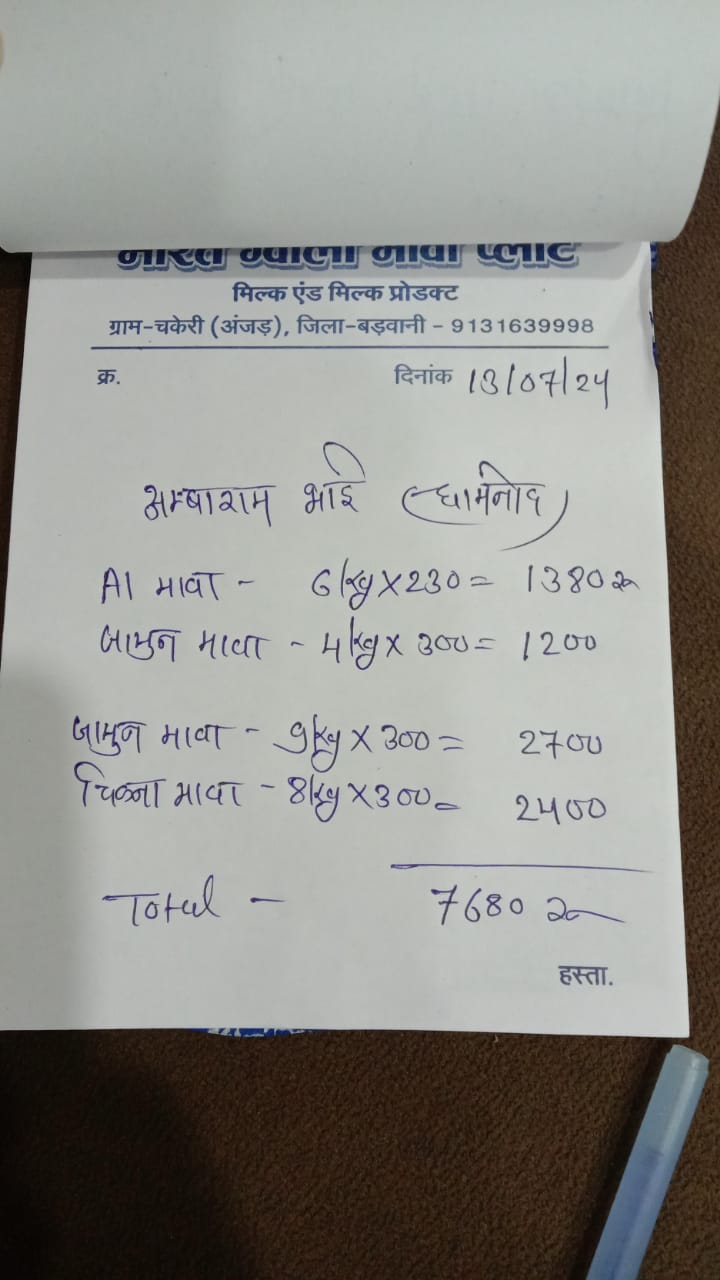 भारत ग्वाला मावा प्लांट
मिल्क एंड मिल्क प्रोडक्ट
ग्राम-चकेरी (अंजड़), जिला-बड़वानी - 9131639998
क्र. दिनांक 13/07/24
अम्बाराम भाई (धामनोद)
A1 मावा - 6kg X 230 = 1380 रु
जामुन मावा - 4kg X 300 = 1200
जामुन मावा - 9kg X 300 = 2700
चिकना मावा - 8kg X 300 = 2400
Total - 7680 रु
हस्ता.